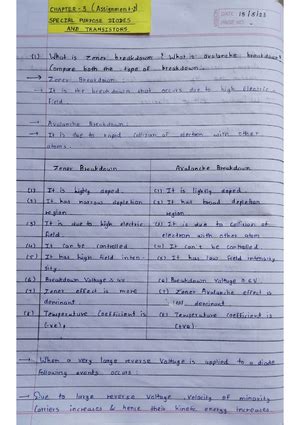 CHAPTER - 3 (Assignment-2)
SPECIAL PURPOSE DIODES
AND TRANSISTORS
DATE: 15/5/23
PAGE NO.:
(1) What is zener breakdown? What is avalanche breakdown?
Compare both the type of breakdown.
→ Zener Breakdown:
→ It is the breakdown that occurs due to high electric
field.
→ Avalanche Breakdown:
→ It is due to rapid collision of electron with other
atoms.
Zener Breakdown
Avalanche Breakdown
(1) It is highly doped.
(1) It is lightly doped.
(2) It has narrow depletion
region
(2) It has broad depletion
region
(3) It is due to high electric
field
(3) It is due to collision of
electron with other atom.
(4) It can be controlled
(4) It can't be controlled
(5) It has high field inten-
sity.
(5) It has low field intensity
(6) Breakdown voltage
(6) Breakdown voltage ≥ 6V
(7) Zener effect is more
dominant
(7) Avalanche effect is
dominant
(8) Temperature coefficient is
(-ve)
(8) Temperature coefficient is
(+ve)
→ When a very large reverse voltage is applied to a diode
following events occur:
→ Due to large reverse voltage, velocity of minority
carriers increases & hence their kinetic energy increases